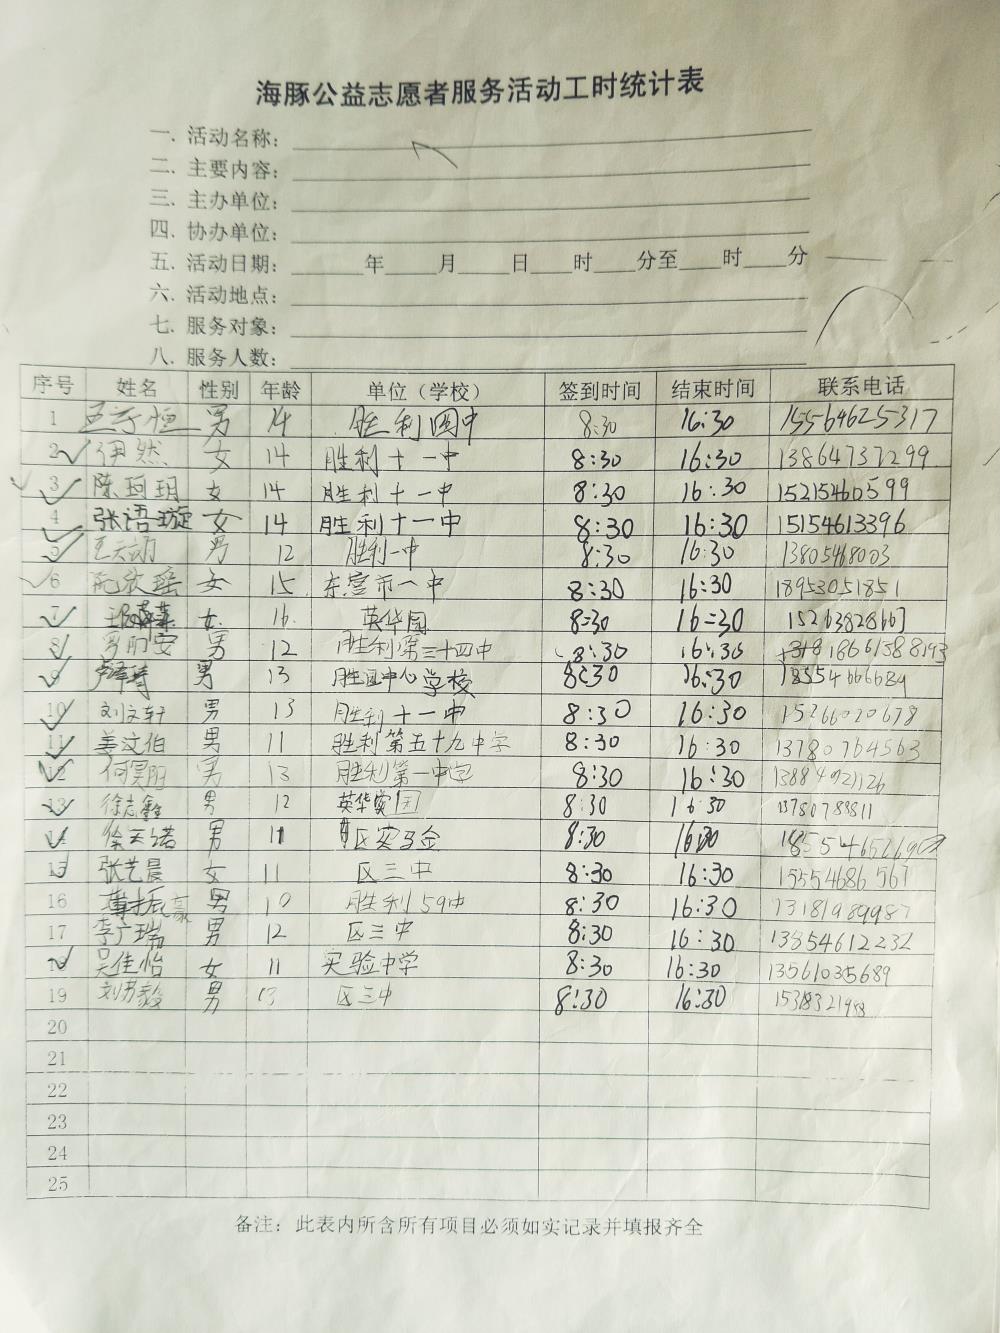 海豚公益志愿者服务活动工时统计表
一. 活动名称:
二. 主要内容:
三. 主办单位:
四. 协办单位:
五. 活动日期: 年 月 日 时 分至 时 分
六. 活动地点:
七. 服务对象:
八. 服务人数:
序号 姓名 性别 年龄 单位（学校） 签到时间 结束时间 联系电话
1 男 14 胜利四中 8:30 16:30 15564625317
2 伊然 女 14 胜利十一中 8:30 16:30 13864737299
3 陈珂玥 女 14 胜利十一中 8:30 16:30 15215460599
4 张语璇 女 14 胜利十一中 8:30 16:30 15154613396
5 男 12 胜利一中 8:30 16:30 13805468003
6 阮欣瑶 女 15 东营市一中 8:30 16:30 18953051851
7 女 16 英华园 8:30 16:30
8 男 12 胜利第三十四中 8:30 16:30 18661588193
9 男 13 学校 8:30 16:30
10 刘文轩 男 13 胜利十一中 8:30 16:30 15266020678
11 姜汶伯 男 11 胜利第五十九中学 8:30 16:30 13780764563
12 何昊阳 男 13 胜利第一中学 8:30 16:30 13884921126
13 徐志鑫 男 12 英华园 8:30 16:30 13780788811
14 男 11 8:30 16:30
15 张艺晨 女 11 区三中 8:30 16:30 15554686567
16 薄振豪 男 10 胜利59中 8:30 16:30 13181989987
17 李广瑞 男 12 区三中 8:30 16:30 13854612232
18 吴佳怡 女 11 实验中学 8:30 16:30 13561035689
19 男 13 区三中 8:30 16:30 15318321988
20
21
22
23
24
25
备注: 此表内所含所有项目必须如实记录并填报齐全